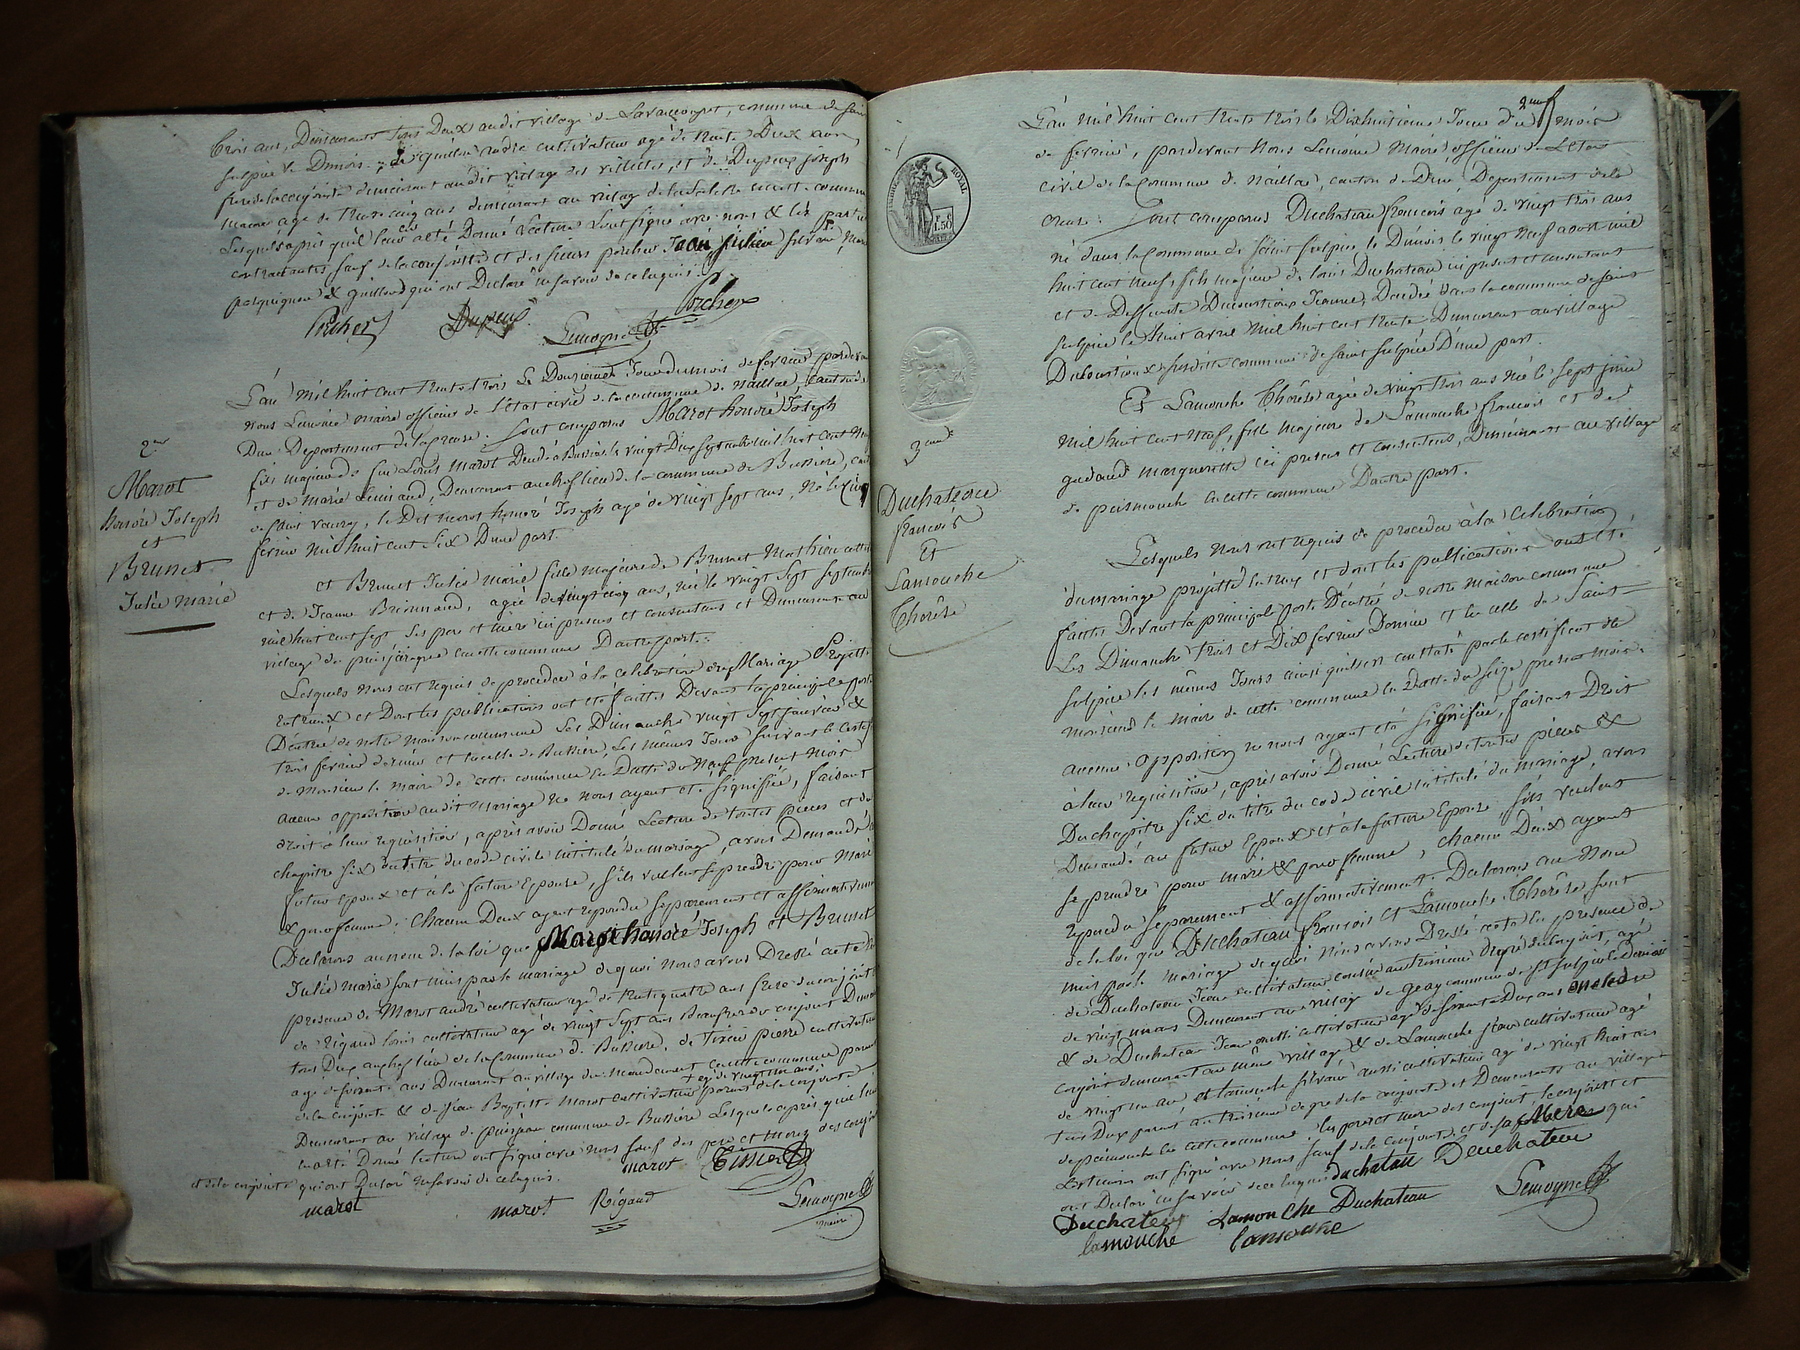 trois ans, Demeurants tous Deux audit village de Lavaucoupet, commune de Saint
sulpice le Dunois, de guillon andré cultivateur agé de trente Deux ans,
frere de la conjointe demeurant audit village des villettes, et de Dupeux joseph
macon agé de trente cinq ans demeurant au village de commune
Lesquels après qu'il leur en a eté Donné Lecture l'ont signé avec nous & les parties
contractantes, sauf de la conjointe et des sieurs porcher Jean julien silvain, 
& guillon qui ont Declaré ne savoir de ce enquis.
Porcher
Porcher Dupeux Lemoyne
L'an mil huit cent trente trois Le Douzieme Jour du mois de fevrier pardevant
nous Lemoine maire officier de l'état civil de la commune de Naillac, canton de
Dun Departement de la creuse. sont comparus Marot honoré Joseph
fils majeur de feu Louis Marot Decedé à Bussiere le vingt Deux septembre mil huit cent
et de Marie Leuivard, Demeurant au chef lieu de la commune de Bussiere, canton
de saint vaury, le Dit marot honoré Joseph agé de vingt sept ans, Né le cinq
fevrier mil huit cent six D'une part.
2me
Marot
honoré Joseph
et
Brunet
Julie marie
et Brunet Julie marie fille majeure de Brunet Mathieu
et de Jeanne Brionnaud, agée de vingt cinq ans, née le vingt sept septembre
mil huit cent sept ses pere et mere ici presens et consentans et Demeurant au
village de puyjarigue en cette commune D'autre part.
Lesquels nous ont requis de proceder à la celebration du Mariage Projetté
entreux et Dont les publications ont été faittes Devant la principale porte
D'entrée de notre maison commune les Dimanche vingt sept janvier &
trois fevrier dernier et en celle de Bussiere les mêmes Jours suivant le certificat
de Monsieur le maire de cette commune en Datte du Neuf present mois
aucune opposition audit Mariage ne nous ayant eté signifiée, faisant
droit à leur requisition, après avoir Donné Lecture de toutes pieces et du
chapitre six du titre du code civil intitulé du mariage, avons Demandé au
futur epoux et à la future Epouse, s'ils veullent se prendre pour Mari
& pour femme; chacun Deux ayant repondu separement et affirmativement
Declarons au nom de la loi que Marot honoré Joseph et Brunet
Julie marie sont unis par le mariage de quoi nous avons Dressé acte en
presence de Marot andré cultivateur agé de trente quatre ans frere du conjoint
de Rigaud louis cultivateur agé de vingt sept ans Beaufrere du conjoint Demeurant
tous Deux au chef lieu de la Commune de Bussiere, de tixier pierre cultivateur
agé de soixante ans Demeurant au village de en cette commune parent
+ agé de vingt un ans
de la conjointe & de Jean Baptiste Marot cultivateur + parent de la conjointe
Demeurant au village de commune de Bussiere Lesquels après qu'il leur
en a eté Donné lecture ont signé avec nous sauf des pere et mere des conjoints
et de la conjointe qui ont Declaré ne savoir de ce enquis.
marot
marot marot Rigaud
Lemoyne
maire
2me
L'an mil huit cent trente trois le Dixhuitieme Jour du mois
de fevrier, pardevant Nous Lemoine Maire officier de L'état
civil de la Commune de Naillac, canton de Dun, Departement de la
creuse: sont comparus Duchateau francois agé de vingt trois ans
né dans la Commune de Saint sulpice le Dunois le vingt Neuf aout mil
huit cent neuf, fils majeur de louis Duchateau ici present et consentant
et de Deffunte Ducourtioux Jeanne, Decedée dans la commune de saint
sulpice le huit avril mil huit cent trente Demeurant au village
Ducourtioux susdite commune de saint sulpice D'une part.
Et Lamouche Thérèse agée de vingt trois ans Née le sept juin
mil huit cent neuf, fille majeure de Lamouche francois et de
gadaud marguerite ici presens et consentens, Demeurant au village
de peismouche en cette commune D'autre part.
3eme
Duchateau
francois
Et
Lamouche
Thérèse
Lesquels Nous ont requis de proceder à la Celebration
du mariage projetté entreux et dont les publications ont été
faittes Devant la principale porte D'entrée de notre maison commune
Les Dimanche trois et Dix fevrier Dernier et en celle de Saint
sulpice les mêmes Jours ainsi qu'il est constaté par le certificat de
monsieur le maire de cette commune en Datte du seize present mois.
aucune opposition ne nous ayant eté signifiée, faisant Droit
à leur requisition, après avoir Donné Lecture de toutes pieces &
Du chapitre six du titre du code civil intitulé du mariage, avons
Demandé au futur Epoux et à la future Epouse s'ils veulent
se prendre pour mari & pour femme, chacun Deux ayant
repondu separement & affirmativement. Declarons au Nom
de la loi que Duchateau francois et Lamouche Thérèse sont
unis par le mariage de quoi Nous avons Dressé acte en presence de
de Duchateau Jean cultivateur cousin au troisieme Degré du conjoint, agé
de vingt un ans Demeurant au village de geay commune de st sulpice le Dunois
& de Duchateau Jean aussi cultivateur agé de soixante Deux ans oncle du
conjoint demeurant au même village & de Lamouche jean cultivateur agé
de vingt un ans et Lamouche silvain aussi cultivateur agé de vingt huit ans
tous Deux parens au troisieme degré de la conjointe et Demeurants au village
de peismouche en cette commune. les pere et mere des conjoints le conjoint et
Les temoins ont signé avec nous sauf de la conjointe et de sa Mere qui
ont Declaré ne savoir de ce enquis duchateau Deuchateau
Duchateau Lamouche Duchateau Lemoyne
lamouche lamouche
ROYAL
1.50